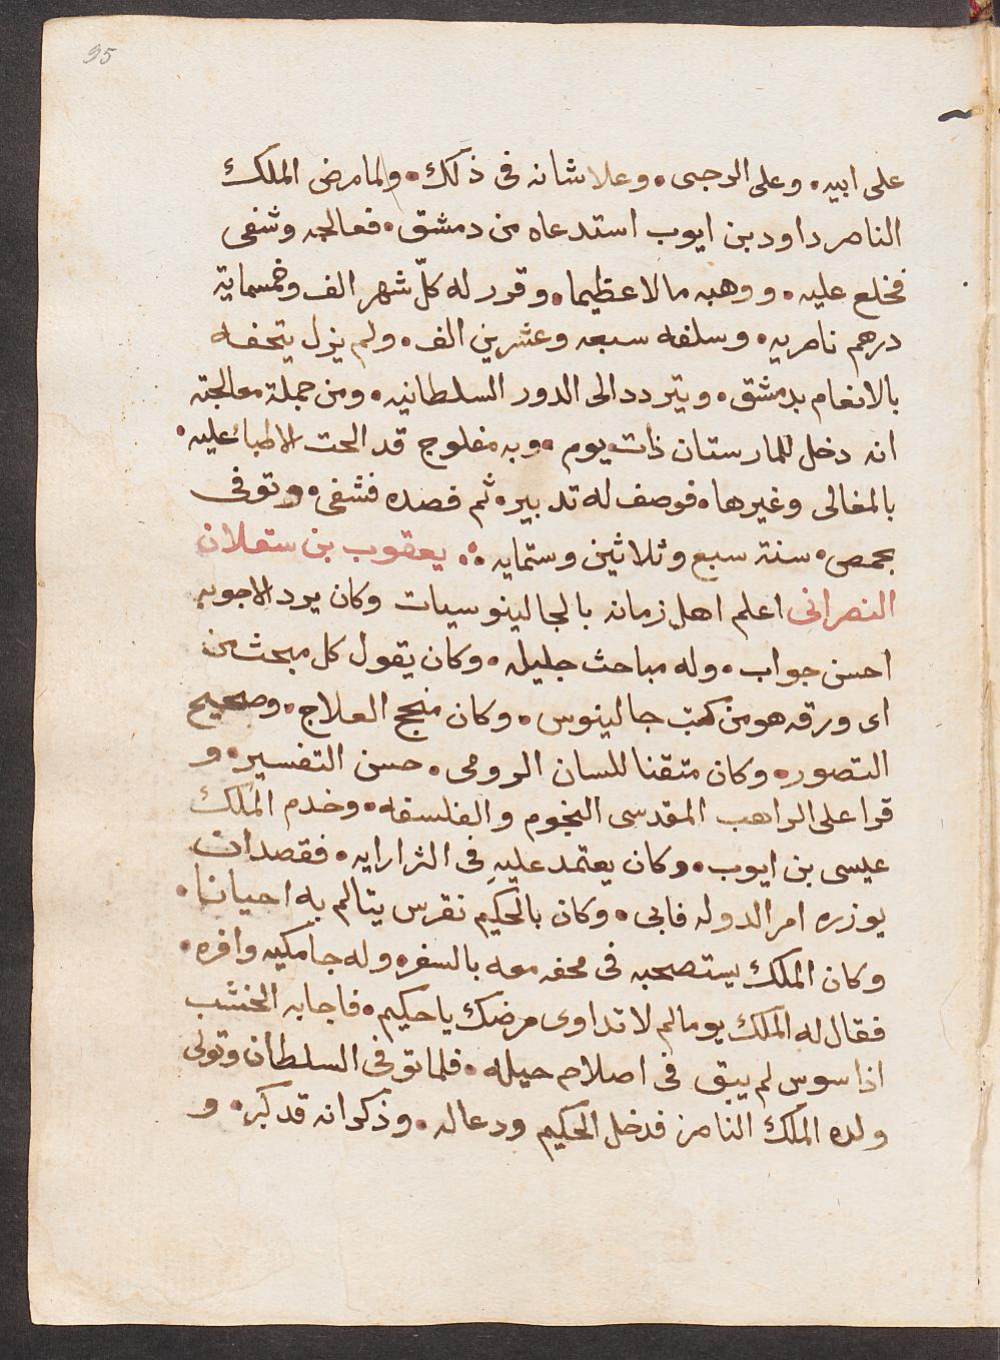 95
على ابيه. وعلى الرحبى. وعلا شانه فى ذلك. ولما مرض الملك
الناصر داود بن ايوب استدعاه من دمشق. فعالجه وشفى
فخلع عليه. ووهبه مالا عظيما. وقرر له كلّ شهر الف وخمسماية
درهم ناصريه. وسلفه سبعه وعشرين الف. ولم يزل يتحفه
بالانعام بدمشق. ويتردد الى الدور السلطانيه. ومن جملة معالجته
انه دخل للمارستان ذات يوم. وبه مفلوج قد الحت الاطباء عليه.
بالمغالى وغيرها. فوصف له تدبيره ثم فصده فشفى. وتوفى
بحمص. سنة سبع وثلاثين وستمايه ∴ يعقوب بن سقلان
النصرانى اعلم اهل زمانه بالجالينوسيات وكان يرد الاجوبه
احسن جواب. وله مباحث جليله. وكان يقول كل مبحث من
اى ورقه هو من كتب جالينوس. وكان منجح العلاج. وصحيح
التصور. وكان متقنا للسان الرومى. حسن التفسير. و
قرا على الراهب المقدسى النجوم والفلسفه. وخدم الملك
عيسى بن ايوب. وكان يعتمد عليهِ فى اكثر ارايه. فقصد ان
يوزره امر الدوله فابى. وكان بالحكيم نقرس يتالم به احيانا.
وكان الملك يستصحبه فى محفه معه بالسفر. وله جامكيه وافره.
فقال له الملك يوما لم لا تداوى مرضك يا حكيم. فاجابه الخشب
اذا سوس لم يبق فى اصلاحه حيله. فلما توفى السلطان وتولى
ولده الملك الناصر فدخل الحكيم ودعا له. وذكر انه قد كبر. و